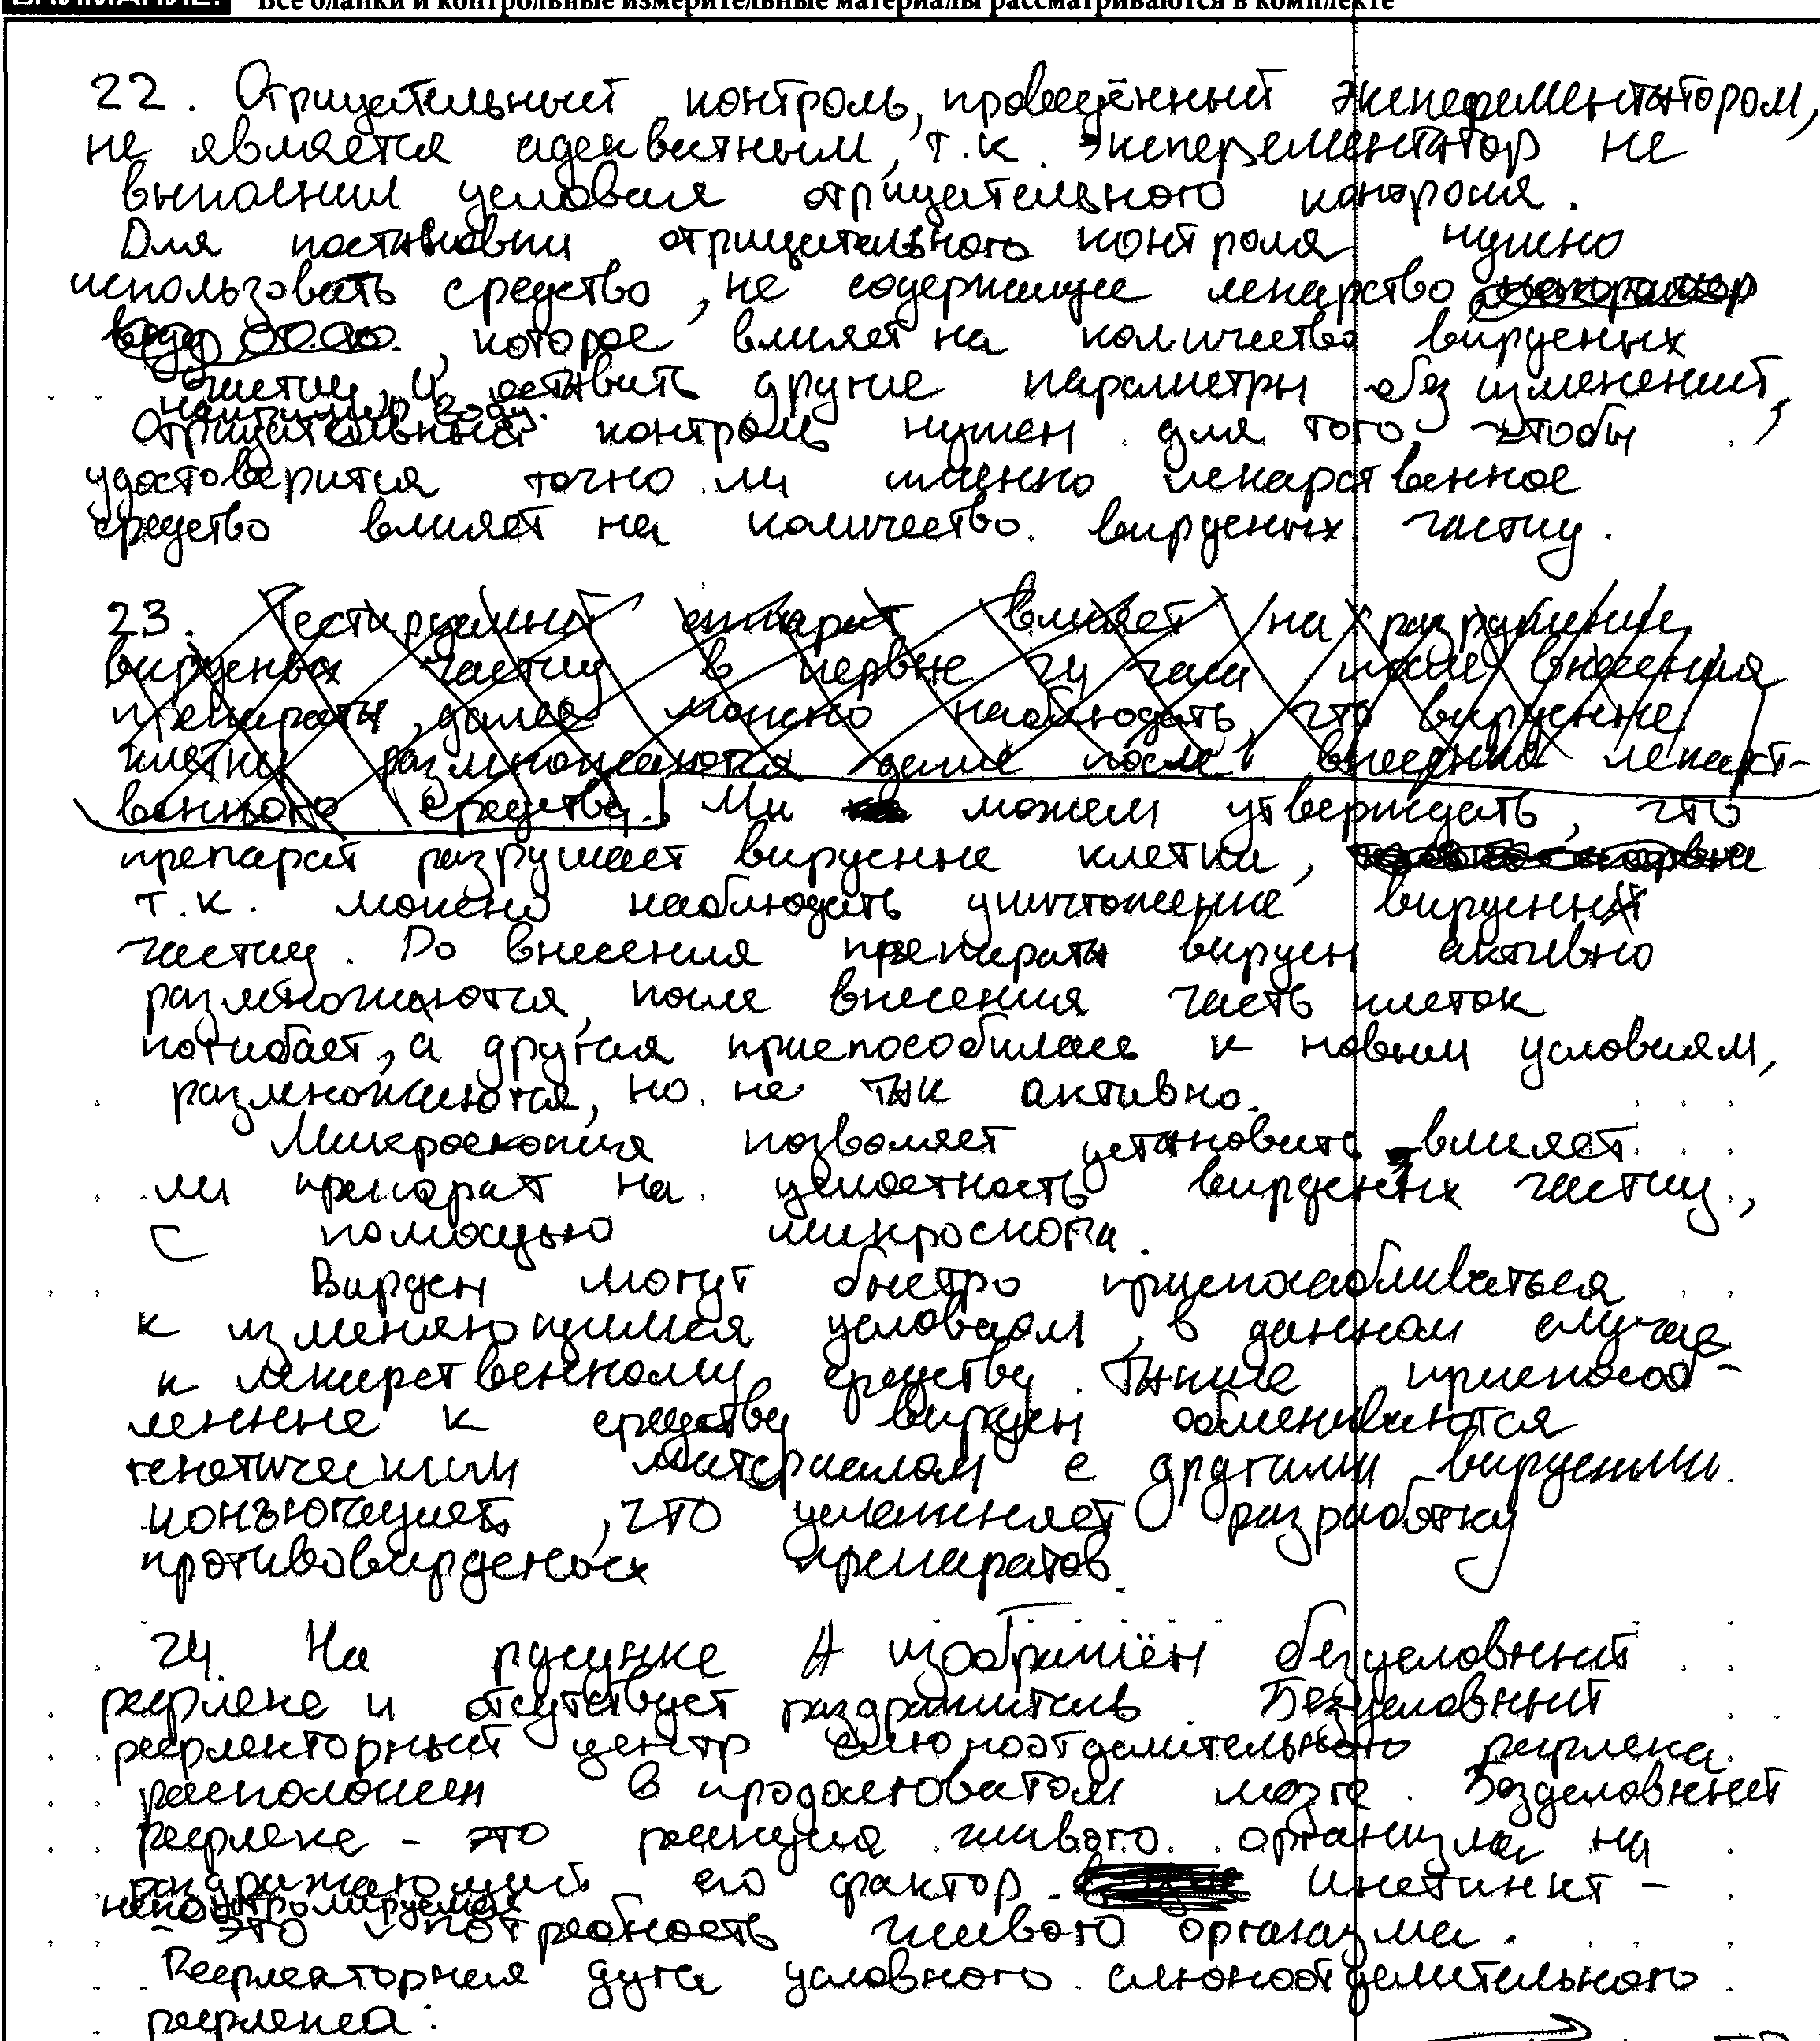 ВНИМАНИЕ! Все бланки и контрольные измерительные материалы рассматриваются в комплекте
22. Отрицательный контроль, проведённый эксперементатором,
не является адекватным, т.к. эксперементатор не
выполнил условия отрицательного контроля.
Для постановки отрицательного контроля нужно
использовать средство, не содержащее лекарство
, которое влияет на количество вирусных
частиц и оставить другие параметры без изменений,
например воду.
Отрицательный контроль нужен для того, чтобы
удостоверится точно ли именно лекарственное
средство влияет на количество вирусных частиц.
23. Тестируемый препарат влияет на разрушение
вирусных частиц в первые 24 часа после внесения
препарата, далее можно наблюдать, что вирусные
клетки размножаются даже после внесения лекарст-
венного средства. Мы можем утверждать, что
препарат разрушает вирусные клетки,
т.к. можно наблюдать уничтожение вирусных
частиц. До внесения препарата вирусы активно
размножаются, после внесения часть клеток
погибает, а другая приспособилась к новым условиям,
размножаются, но не так активно.
Микроскопия позволяет установить влияет
ли препарат на целостность вирусных частиц,
с помощью микроскопа.
Вирусы могут быстро приспосабливаться
к изменяющимся условиям, в данном случае
к лекарственному средству. Такие приспособ-
ленные к средству вирусы обмениваются
генетическим материалом с другими вирусами.
конъюгацией, что усложняет разработку
противовирусных препаратов.
24. На рисунке А изображён безусловный
рефлекс и отсутствует раздражитель. Безусловный
рефлекторный центр слюноотделительного рефлекса
расположен в продолговатом мозге. Безусловный
рефлекс - это реакция живого организма на
раздражающий его фактор. Инстинкт -
неконтролируемая
- это потребность живого организма.
Рефлекторная дуга условного слюноотделительного
рефлекса: